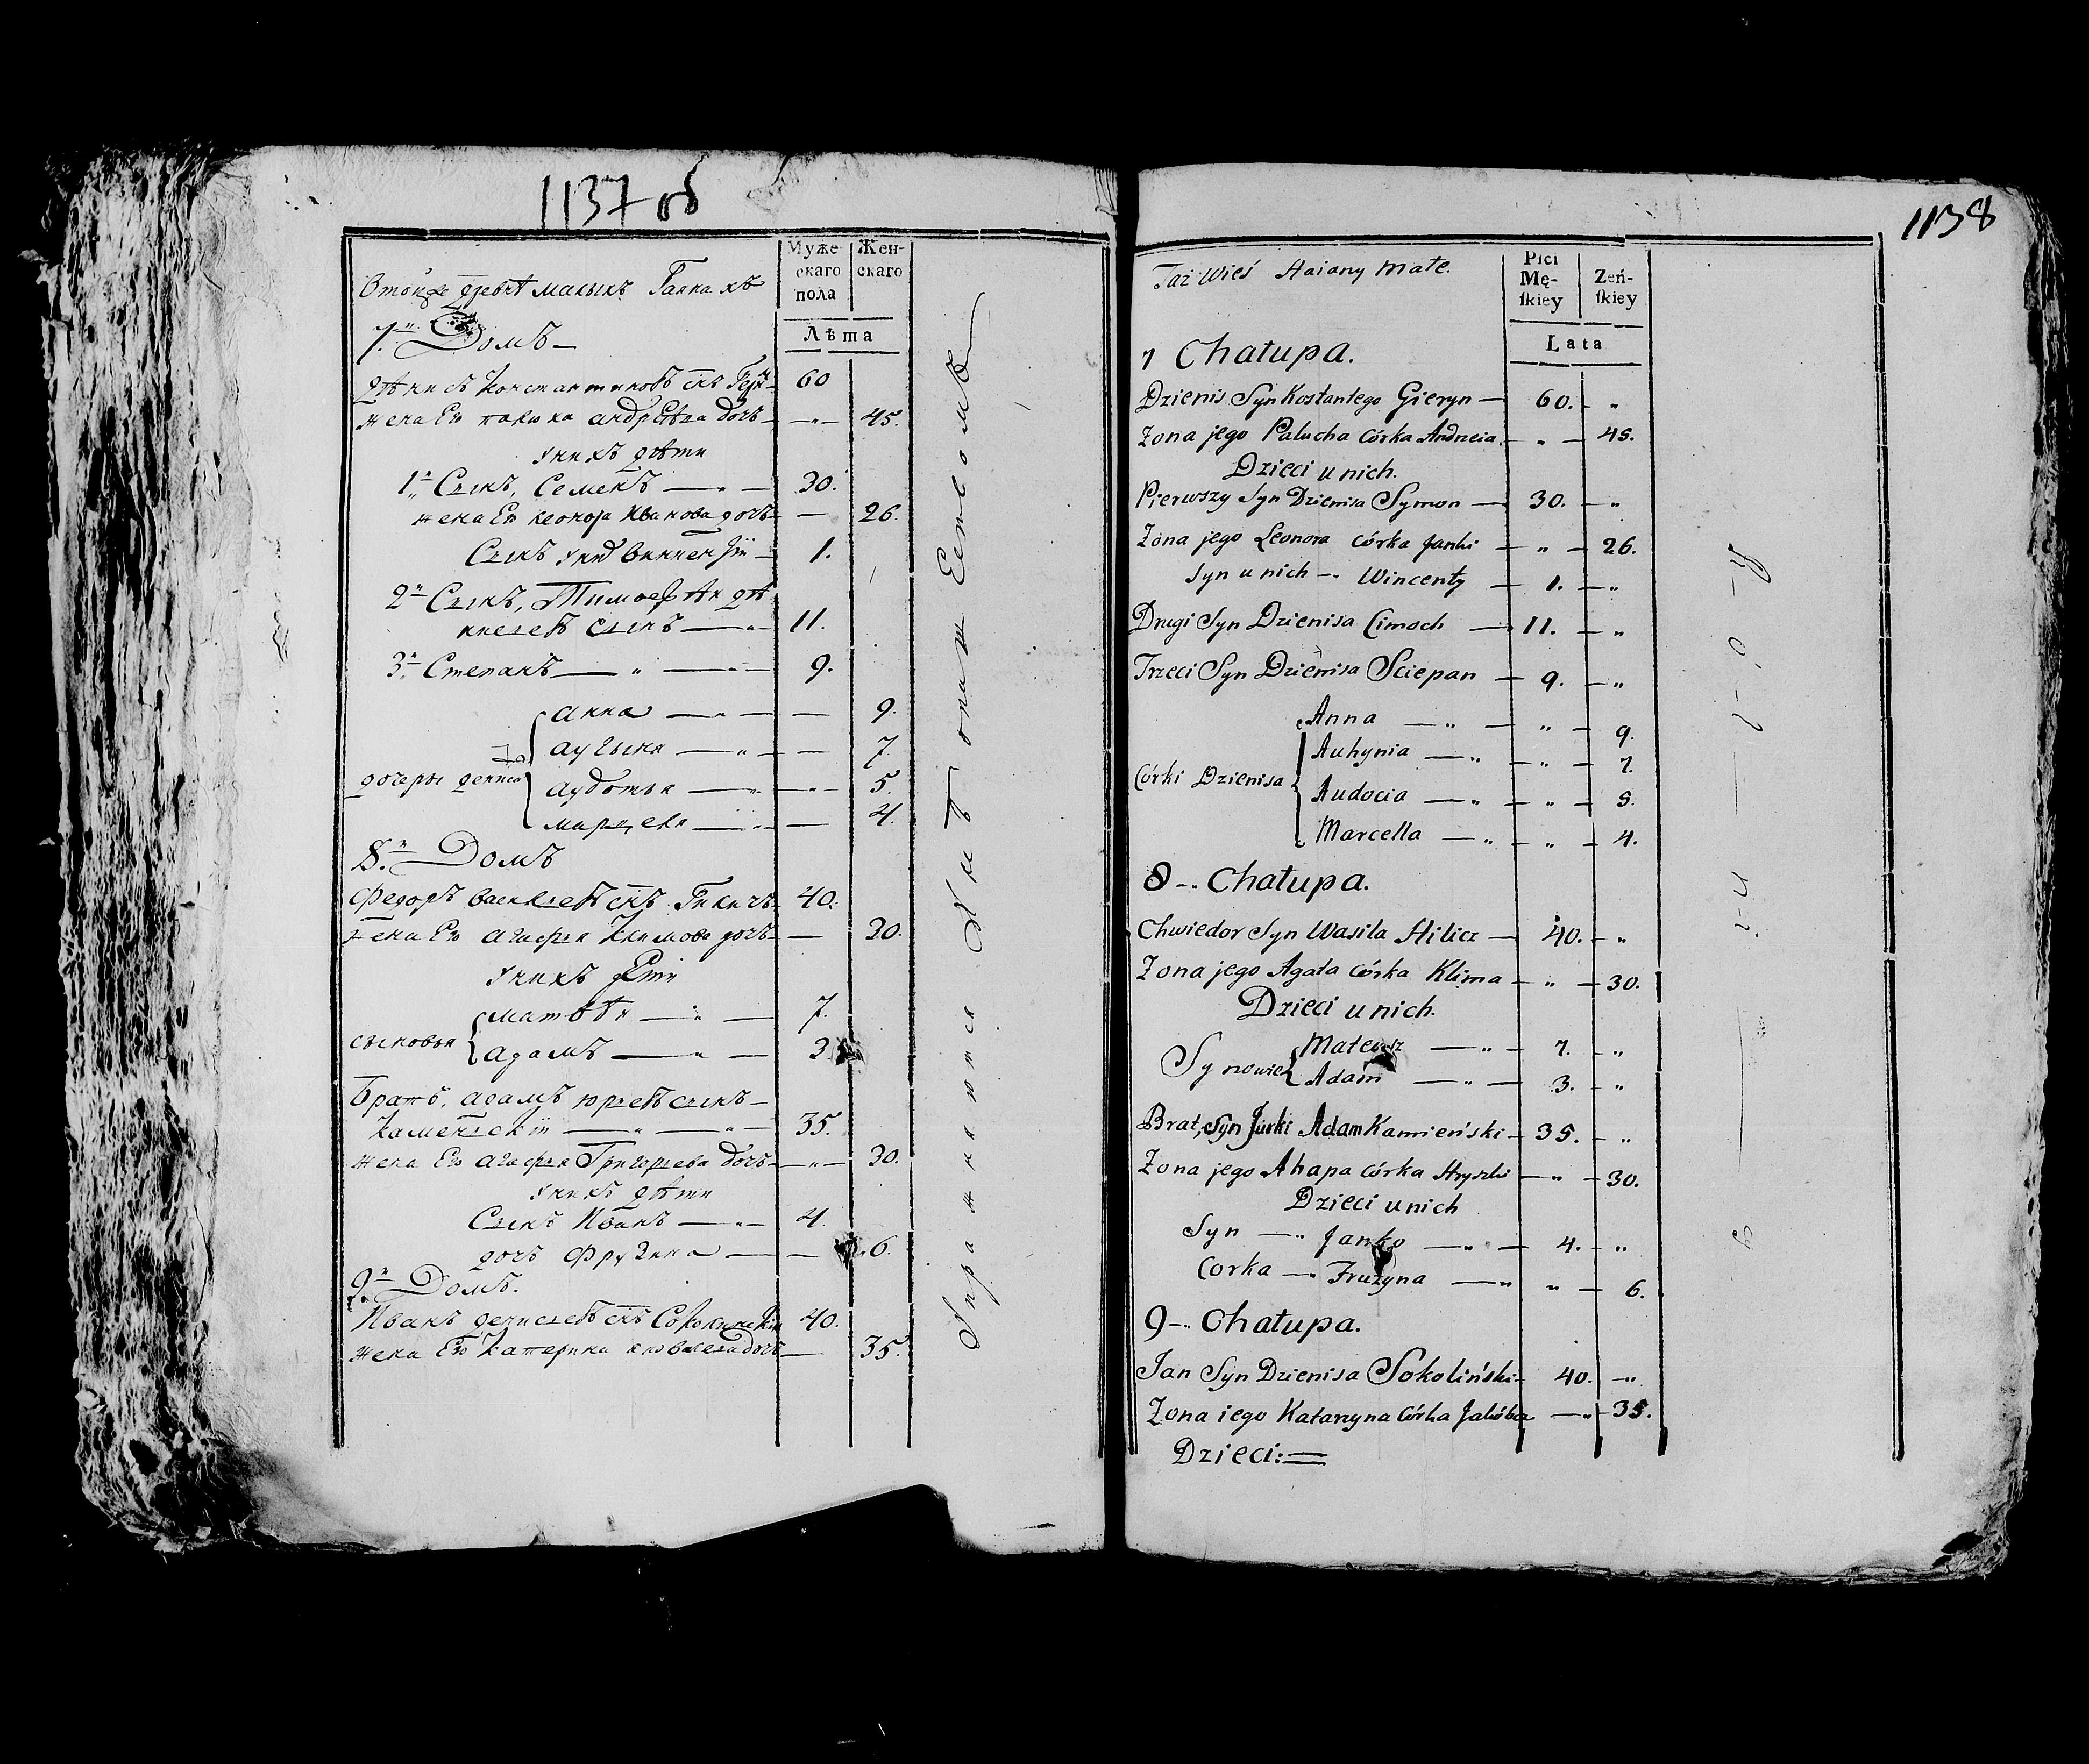 1137 об
Муже-
скаго
пола
Жен-
скаго
Лѣта
7. Домъ —
60
жена Его андрѣева дочь — „ — 45.
у нихъ дѣти
1й Сынъ, Семенъ — „ — 30.
жена Его Иванова дочь — 26.
Сынъ у нихъ — 1.
2й Сынъ, Тимофѣй
сынъ — „ 11.
3й Степанъ — „ — „ — 9.
анна — „ — — 9.
аугыня — „ — — 7.
дочеры дениса
аудотья — „ — „ — 5.
— „ — 4.
8й Домъ
Федоръ Васильевъ снъ Гиличъ 40.
жена Его агафья Климова дочь — 30.
у нихъ дѣти
матвѣй — „ — 7.
сыновья
адамъ — „ — 3
Братъ, адамъ юрьевъ сынъ —
Каменьскiй — „ — „ — 35.
жена Его агафья Григорьева дочь — „ — 30.
у нихъ дѣти
Сынъ Иванъ — „ — 4.
дочь Фрузина — — 6.
9й Домъ.
Иванъ денисьевъ снъ 40.
жена Его Катерина дочь — 35.
1138
Taż Wieś Haiany Małe.
Pici
Mę-
ſkiey
Żeń-
ſkiey
Lata
7 Chałupa.
Dzienis Syn Kostantego Gieryn — 60. - „
Żona jego Palucha Córka Andrzeia. — „ — 45.
Dzieci u nich.
Pierwszy Syn Dzienisa Symon — 30. — „
Żona jego Leonora córka Janki — „ — 26.
Syn u nich — „ Wincenty — 1. — „
Drugi Syn Dzienisa Cimoch — 11. — „
Trzeci Syn Dzienisa Sciepan — 9. — „
Anna — „ — „ — 9.
Auhynia — „ — „ — 7.
Córki Dzienisa
Audocia — „ — „ — 5.
Marcella — „ — „ — 4.
8 — „ Chałupa.
Chwiedor Syn Wasila Hilicz — 40. — „
Żona jego Agata córka Klima — „ — 30.
Dzieci u nich.
Mateusz — „ — 7. — „
Synowie
Adam — „ — 3. — „
Brat, Syn Jurki Adam Kamieński — 35. — „
Żona jego Ahapa córka Hryszki — „ — 30.
Dzieci u nich
Syn — „ Janko — „ — 4. — „
Corka — „ Fruzyna — „ „ — 6.
9 — „ Chałupa.
Jan Syn Dzienisa Sokoliński — 40. — „
Żona iego Katarzyna Córka Jakóba — „ — 35.
Dzieci: =